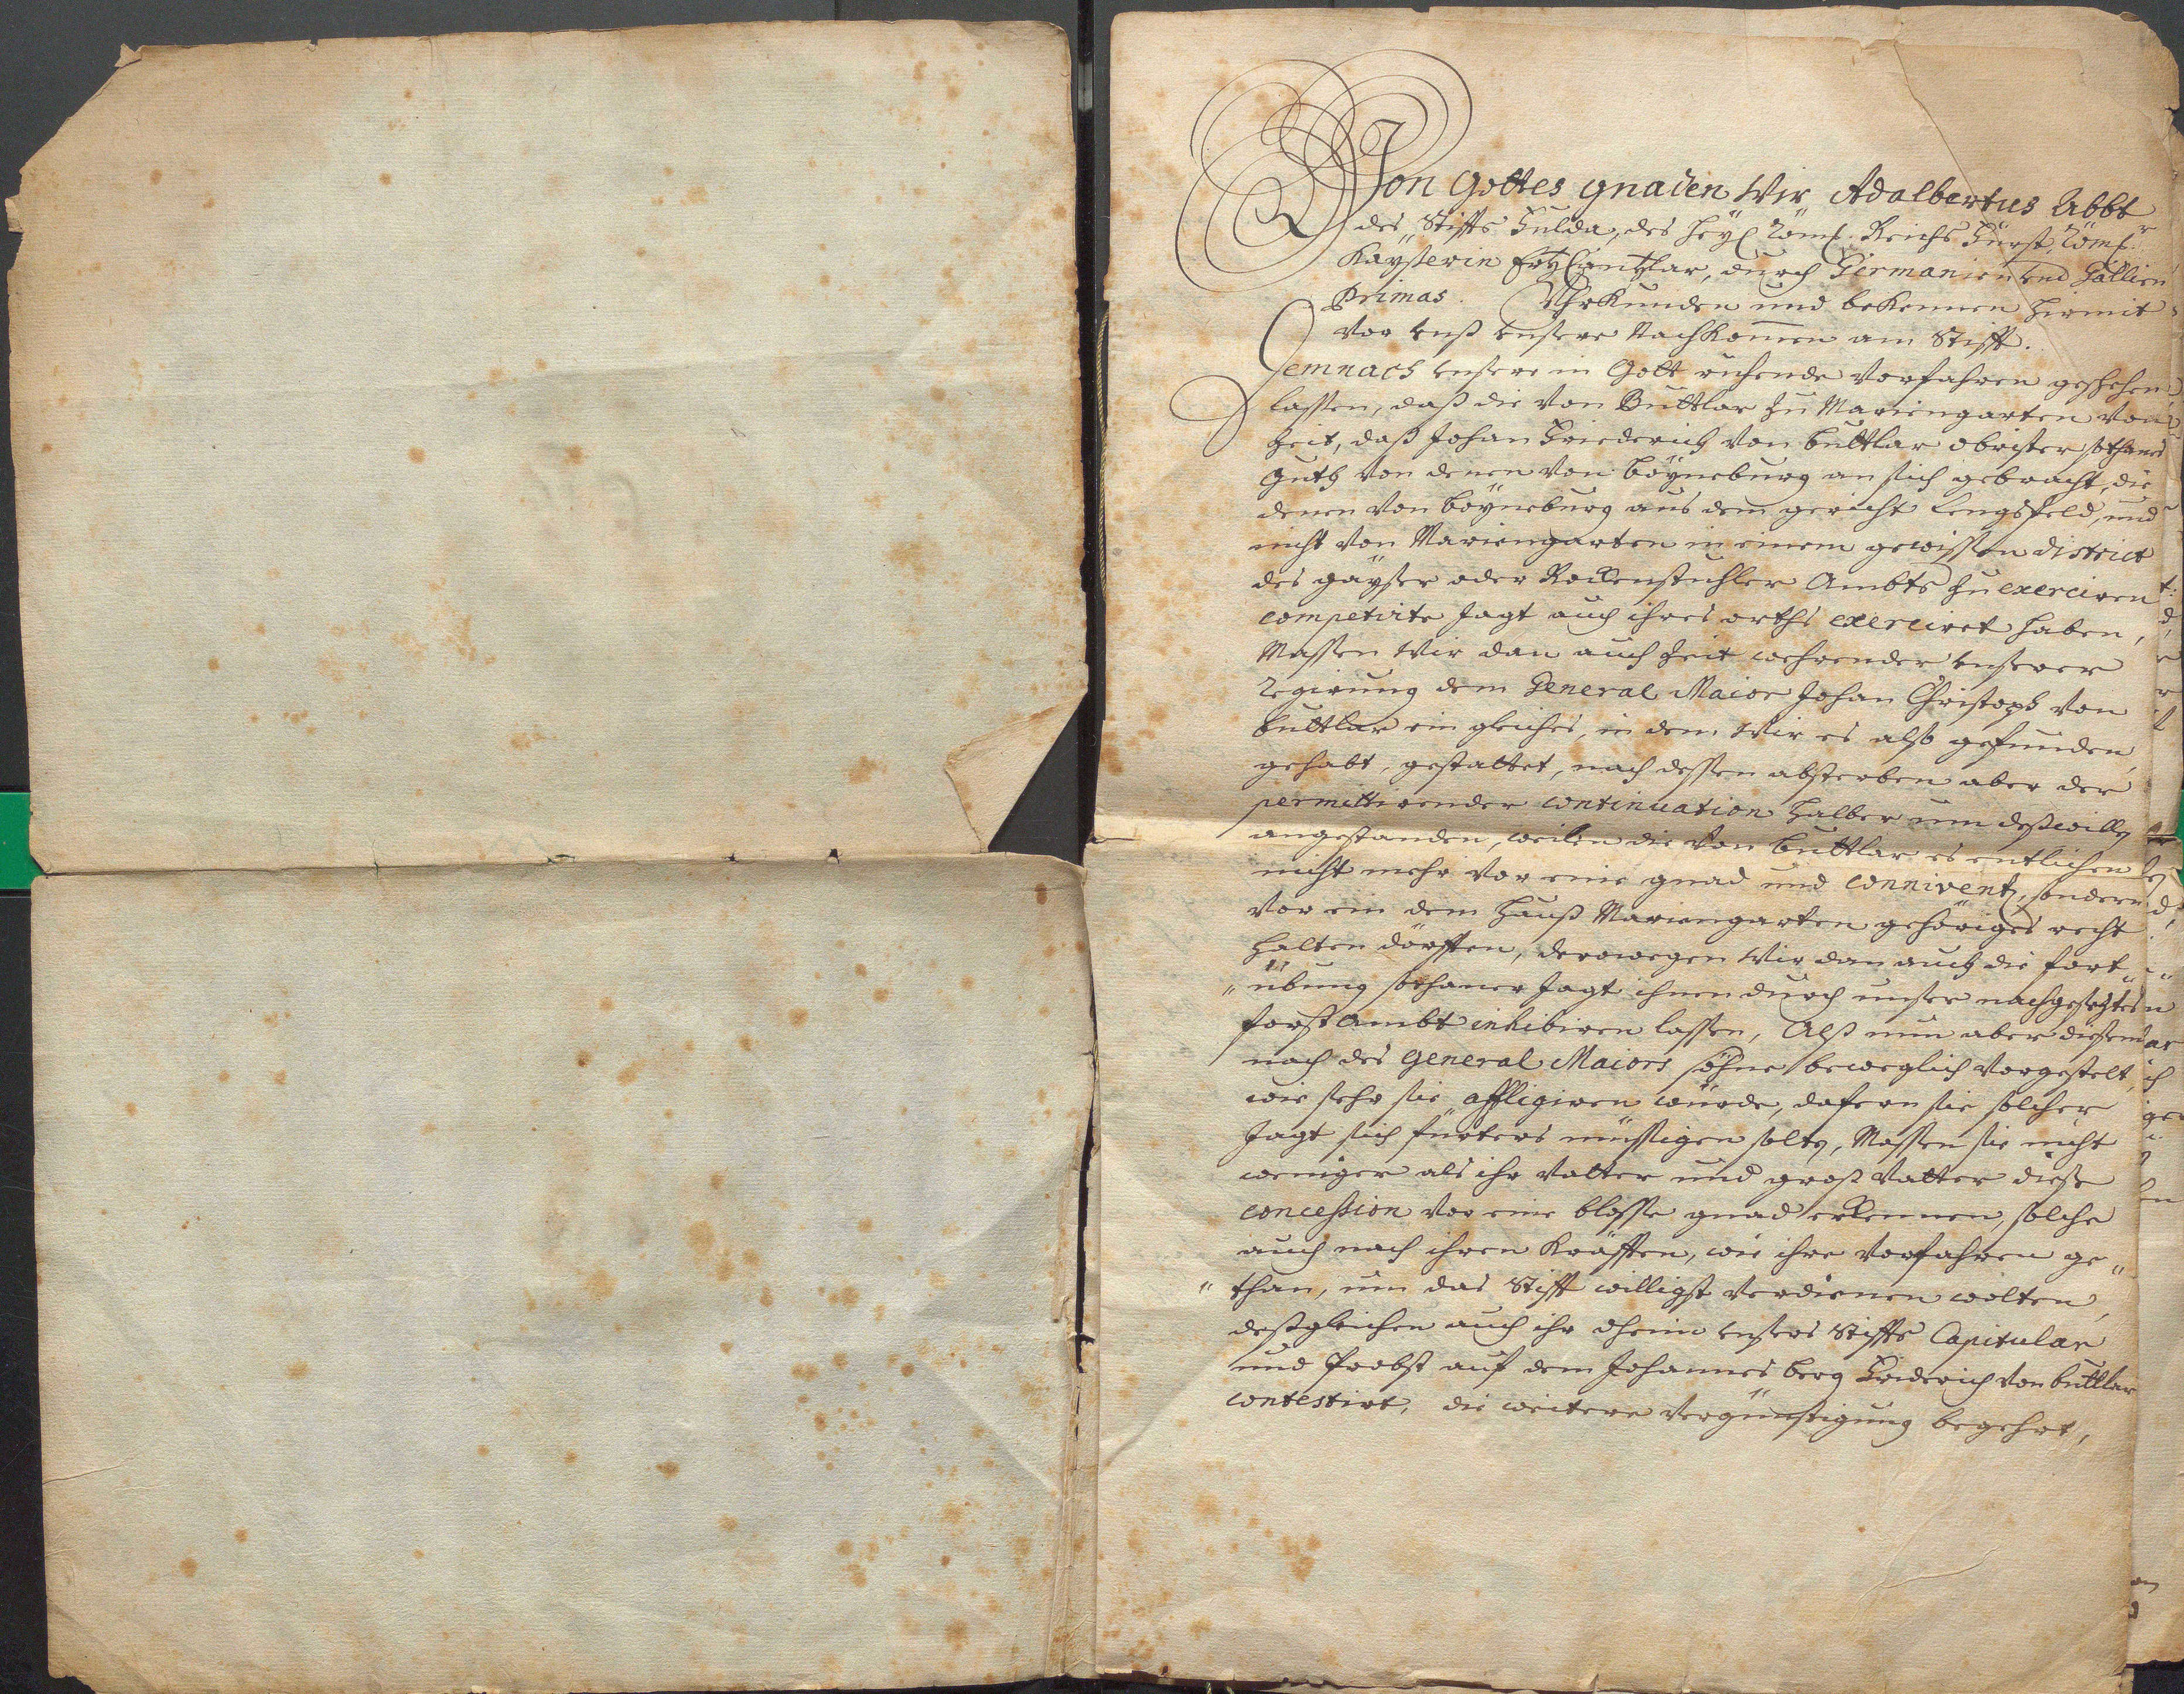 Von Gottes gnaden Wir Adalbertus Abbt
des Stiffts Fulda, des Heyl. Röm. Reichs Fürst, Röm.r
Kayserin ErtzCantzlar, durch Germanien und Gallien
Primas. Uhrkunden und bekennen hiermit
vor unß unsere Nachkommen am Stifft.
Demnach unsere in Gott ruhende Vorfahren geschehen
lassen, daß die von Buttlar zu Mariengarten von
Zeit, daß Johan Friederich von Buttlar obrister sothanes
guth von denen von Böyneburg an sich gebracht, die
denen von Böyneburg aus dem gericht Lengsfeld, und
nicht von Mariengarten in einem gewissen district
des gayser oder Rockenstuhler Ambts zu exerciren
competirte Jagt auch ihres orths exerciret haben,
Massen Wir dan auch Zeit wehrender unserer
regirung dem General Maior Johan Christoph von
Buttlar ein gleiches, in dem Wir es also gefunden
gehabt, gestattet, nach dessen absterben aber der
permittirender continuation halber um deßwillen
angestanden, weilen die von Buttlar es entlichen
nicht mehr vor eine gnad und conniventz, sondern
vor ein dem Hauß Mariengarten gehöriges recht
halten dörfften, derowegen Wir dan auch die fort„
„übung sothaner Jagt ihnen durch unser nachgesetztes
forstAmbt inhibiren lassen, Alß nun aber diesem
nach des General Maiors söhne beweglich vorgestelt,
wie sehr sie affligiren würde, dafern sie solcher
Jagt sich furters müssigen solten, Massen sie nicht
weniger als ihr Vatter und groß Vatter diese
concession vor eine blosse gnad erkennen, solche
auch nach ihren Kräfften, wie ihre Vorfahren ge„
„than, um das Stifft willigst verdienen wolten,
deßgleichen auch ihr oheim unsers Stiffts Capitular
und Probst auf dem Johannes berg Friderich von Buttlar
contestirt, die weitere vergünstigung begehrt,